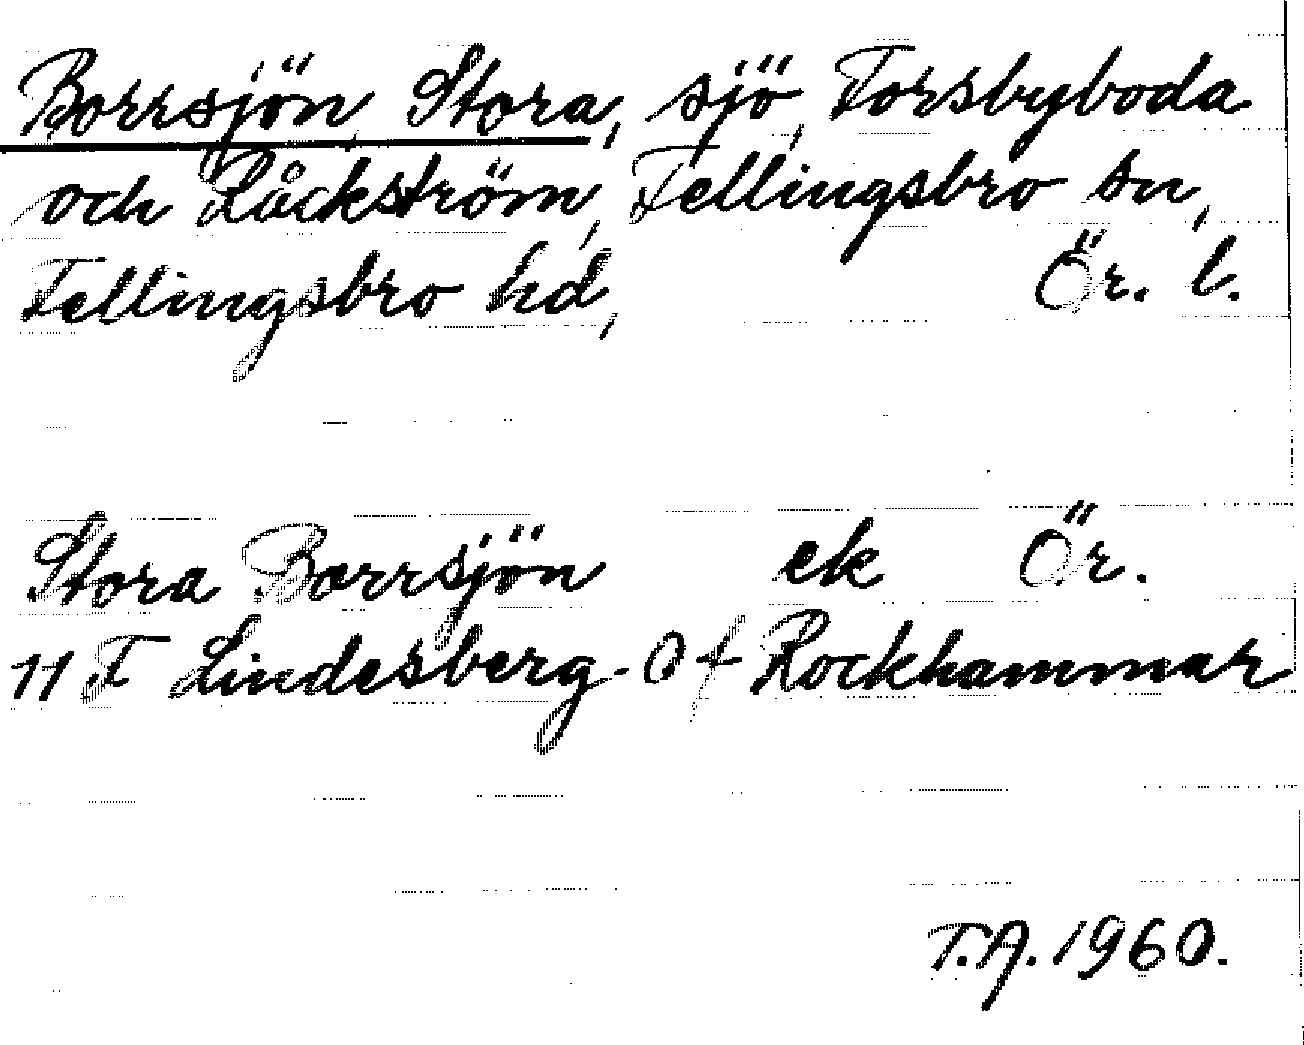 Borrsjön, Stora, sjö, Forsbyboda
och Låckström, Fellingsbro sn,
Fellingsbro hd, Ör. l.
Stora Borrsjön ek Ör.
11 F Lindesberg - O f Rockhammar
T.A. 1960.